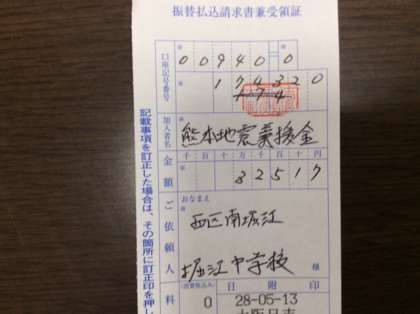 振替払込請求書兼受領証
口座記号番号
00940 0
174320
174
加入者名
熊本地震義援金
金額
千百十万千百十円
32517
ご依頼人
おなまえ
西区南堀江
堀江中学校 様
料
(消費税込み)
0
日附印
28-05-13
記載事項を訂正した場合は、その箇所に訂正印を押し